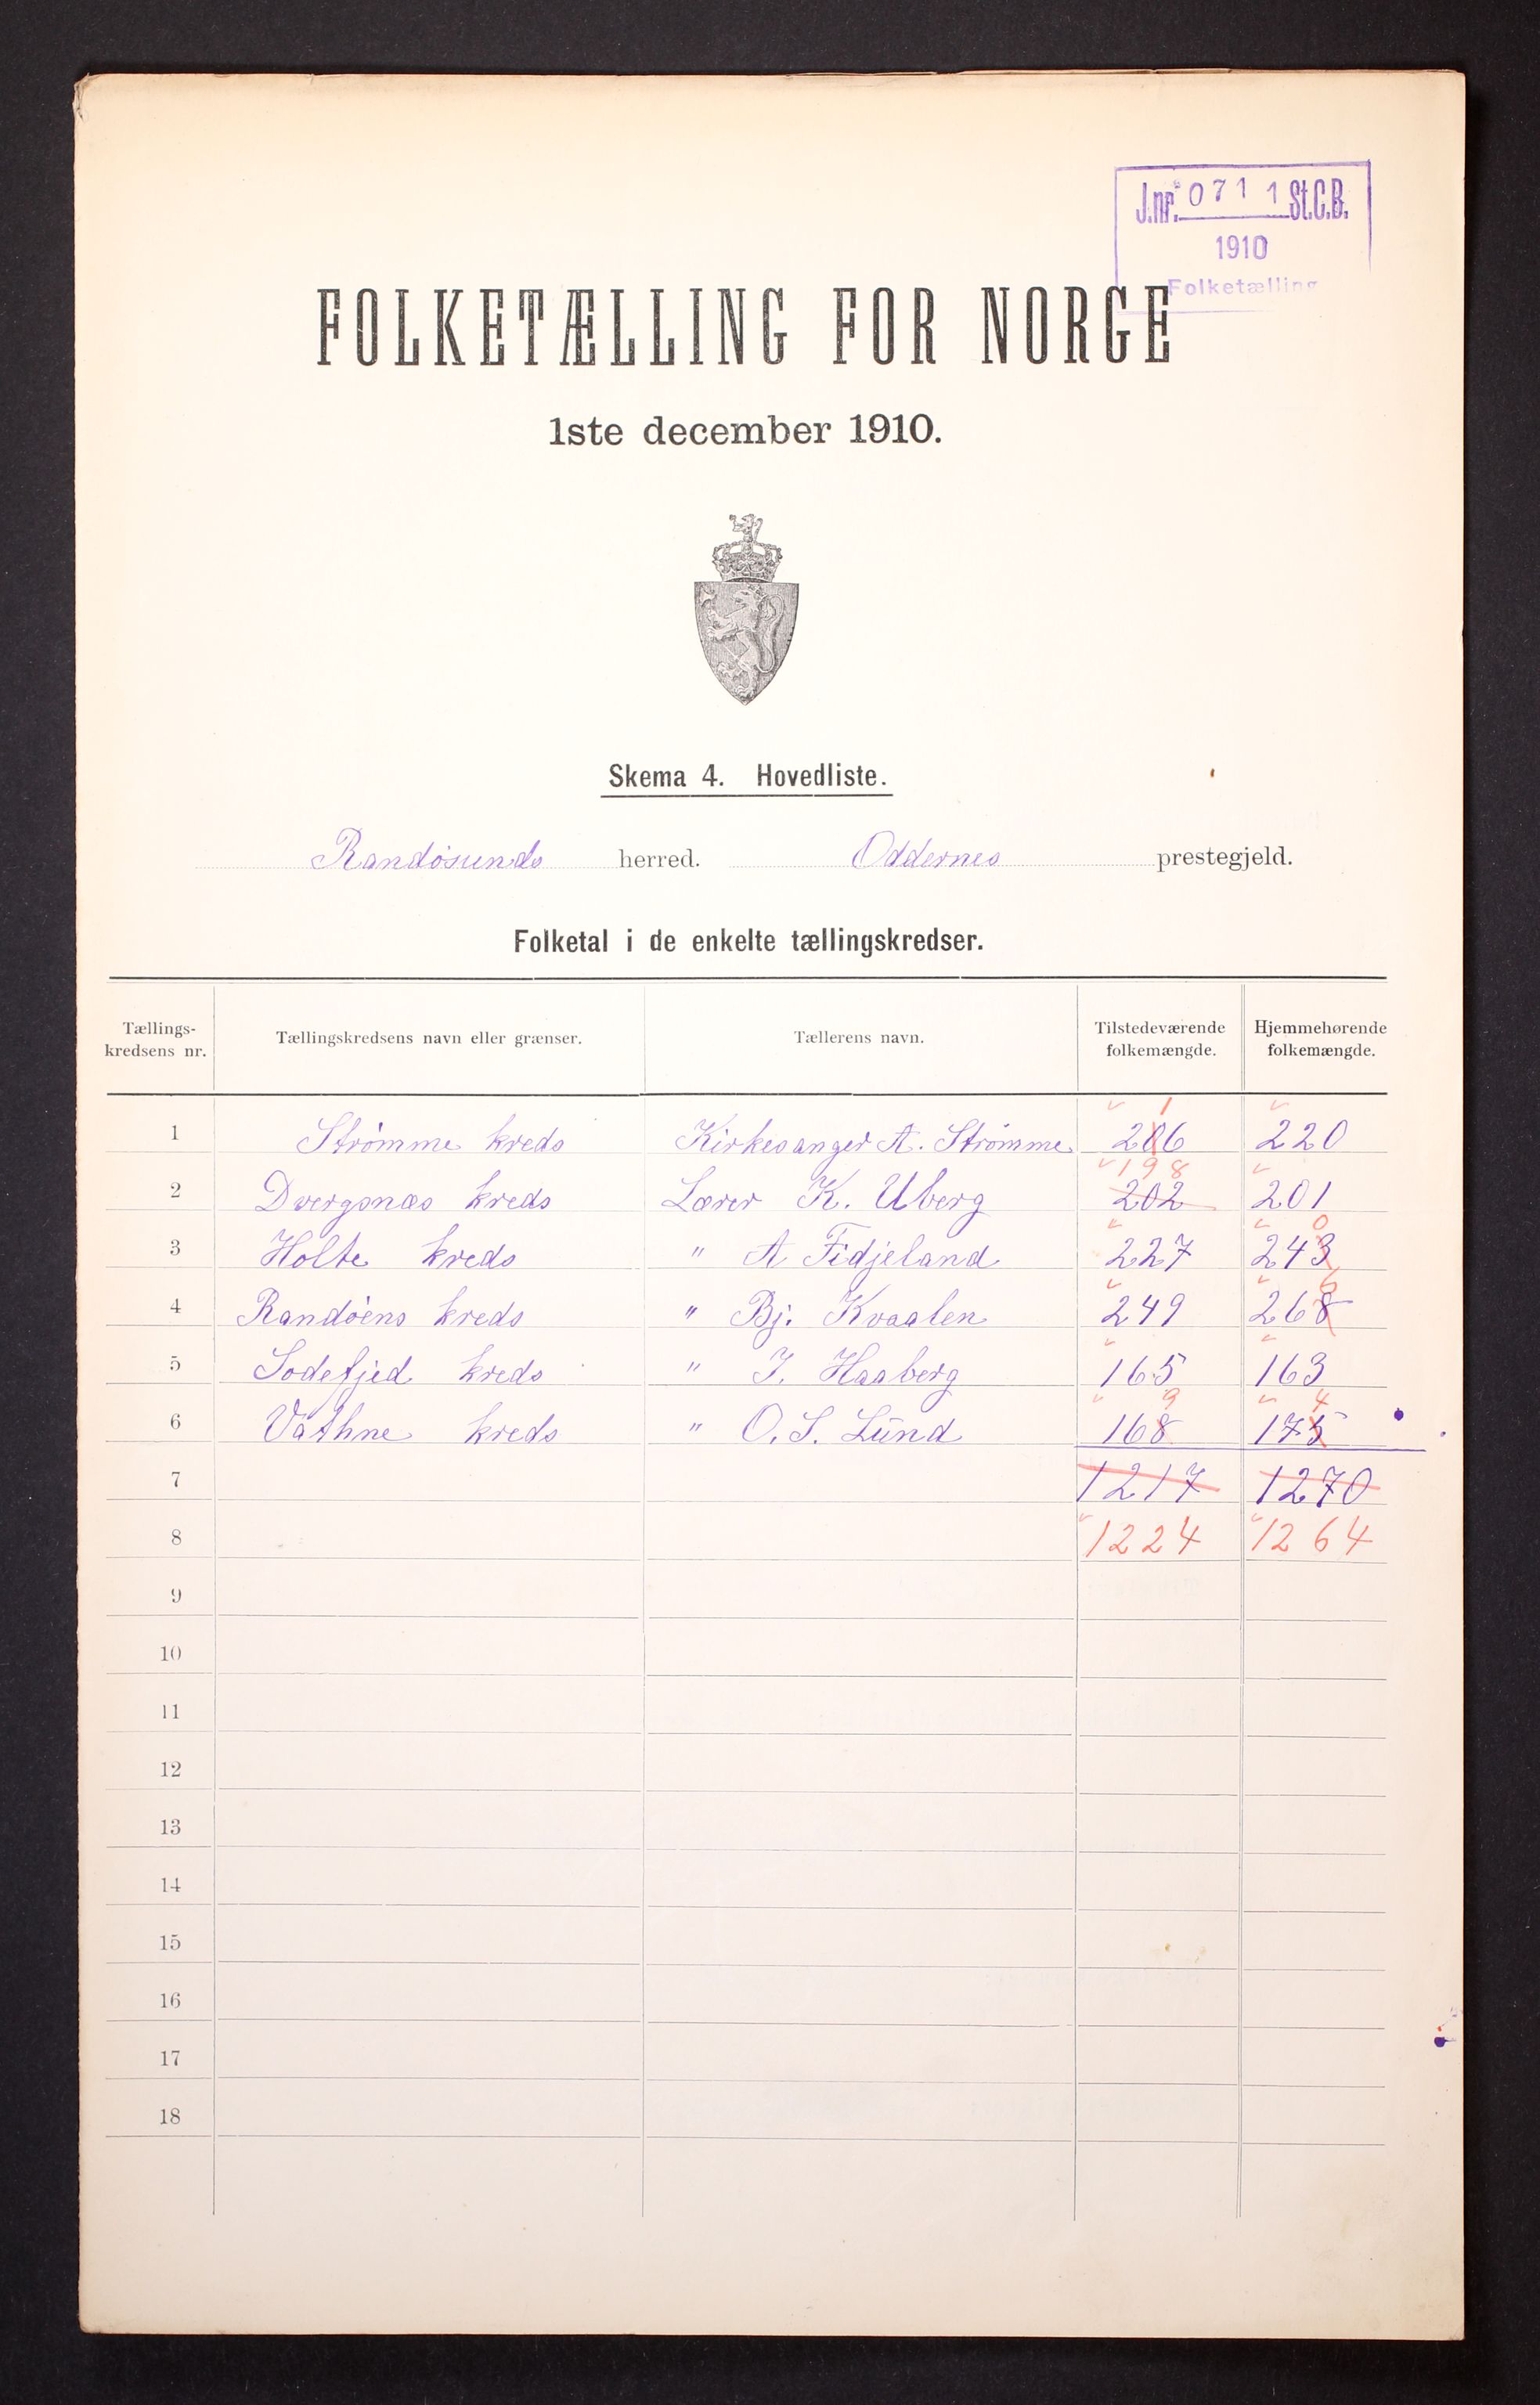 J.nr. 0711 St.C.B.
1910
Folketælling
FOLKETÆLLING FOR NORGE
1ste december 1910.
Skema 4. Hovedliste.
Randösunds herred. Oddernes prestegjeld.
Folketal i de enkelte tællingskredser.
Tællings-kredsens nr. Tællingskredsens navn eller grænser. Tællerens navn. Tilstedeværende folkemængde. Hjemmehørende folkemængde.
1
1 Strömme kreds Kirkesanger A. Strömme 206 220
198
2 Dvergsnæs kreds Lærer K. Uberg 202 201
0
3 Holte kreds " A Fidjeland 227 243
6
4 Randöens kreds " Bj. Kvaalen 249 268
5 Sodefjed kreds " I. Haaberg 165 163
9 4
6 Våthne kreds " O. S. Lund 168 175
7 1217 1270
8 1224 1264
9
10
11
12
13
14
15
16
17
18